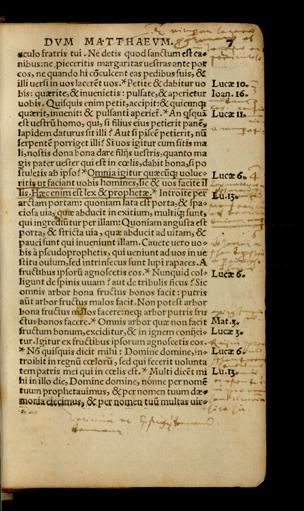 DVM MATTHAEVM. 7
oculo fratris tui. Ne detis quod sanctum est ca-
nibus: ne proieceritis margaritas uestras ante por
cos, ne quando hi cõculcent eas pedibus suis, &
illi uersi in uos lacerẽt uos.* Petite & dabitur uo
bis: quærite, & inuenietis: pulsate, & aperietur
uobis. Quisquis enim petit, accipit: & quicunq;
quærit, inuenit: & pulsanti aperiet̃.* An quisq̃
est uestrũ homo, qui, si filius eius petierit panẽ,
lapidem daturus sit illi? Aut si piscẽ petierit, nũ
serpentẽ porriget illi? Si uos igitur cum sitis ma
li, nostis dona bona dare filijs uestris, quanto ma
gis pater uester qui est in cœlis, dabit bona, si po
stuletis ab ipso?* Omnia igitur quæcũq; uolue-
ritis ut faciant uobis homines, sic & uos facite il
lis. Hæc enim est lex & prophetæ.* Introite per
arctam portam: quoniam lata est porta, & spa-
ciosa uia, quæ abducit in exitium, multiq; sunt,
qui ingrediũtur per illam: Quoniam angusta est
porta, & stricta uia, quæ abducit ad uitam, &
pauci sunt qui inueniunt illam. Cauete uero uo-
bis à pseudoprophetis, qui ueniunt ad uos in ue
stitu ouium, sed intrinsecus sunt lupi rapaces. A
fructibus ipsorũ agnoscetis eos.* Nunquid col-
ligunt de spinis uuam? aut de tribulis ficus? Sic
omnis arbor bona fructus bonos facit: putris
aũt arbor fructus malos facit. Non potest arbor
bona fructus malos facere: neq; arbor putris fru
ctus bonos facere.* Omnis arbor quæ non facit
fructum bonum, exciditur, & in ignem conijci-
tur. Igitur ex fructibus ipsorum agnoscetis eos.
* Nõ quisquis dicit mihi: Domine domine, in-
troibit in regnũ cœlorũ, sed qui fecerit uolunta
tem patris mei qui in cœlis est.* Multi dicẽt mi
hi in illo die, Domine domine, nonne per nomẽ
tuum prophetauimus, & per nomen tuum dæ-
monia eiecimus, & per nomen tuũ multas uir-
Lucæ 10.
Ioan. 16.
Lucæ 11.
Lucæ 6.
Lu. 13.
Lucæ 6.
Mat. 3.
Lucæ 3.
Lucæ 6.
Lu. 13.